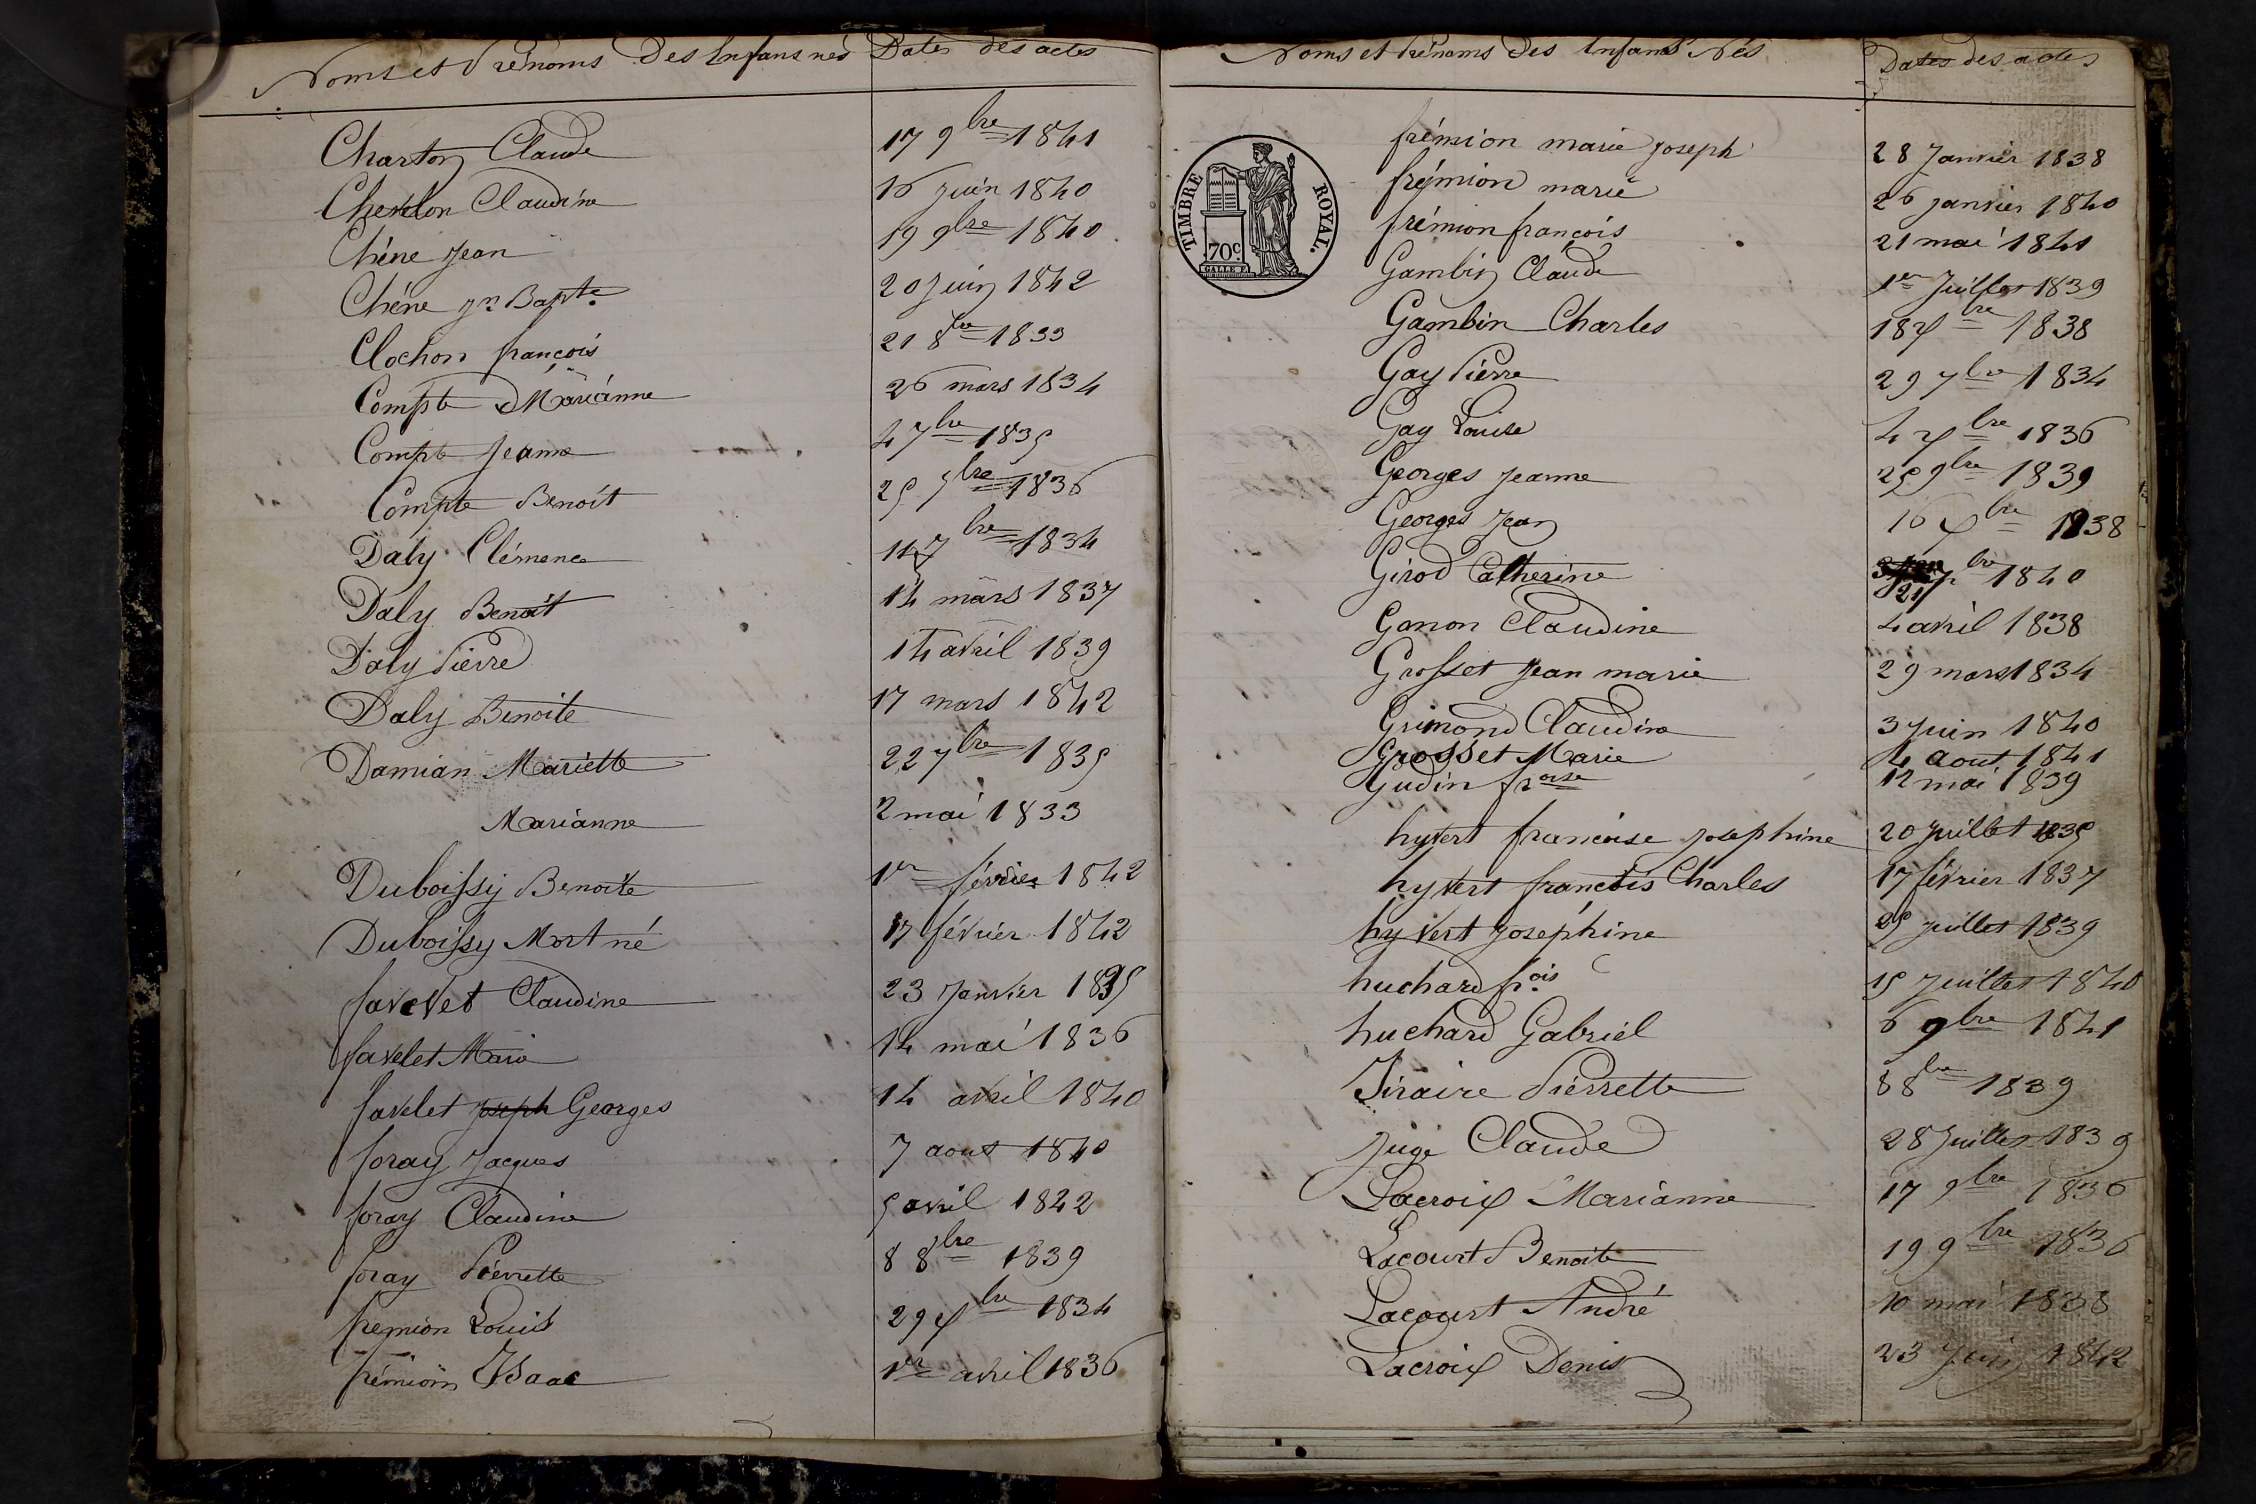 Noms et Prénoms Des Enfans nés Dates des actes
Charton Claude 17 9bre 1841
Chevelon Claudine 16 juin 1840
Chêne Jean 19 9bre 1840
Chêne Jn Bapte 20 Juin 1842
Clochon françois 21 8bre 1833
Compte Marianne 26 mars 1834
Compte Jeanne 4 7bre 1835
Compte Benoît 25 7bre 1836
Daly Clémence 7bre 1834
Daly Benoît 14 mars 1837
Daly Pierre 14 avril 1839
Daly Benoite 17 mars 1842
Damian Mariette 22 7bre 1835
Marianne 2 mai 1833
Duboissy Benoite 1er février 1842
Duboissy Mort né 17 février 1842
favevet Claudine 23 Janvier 1835
favelet Marie 14 mai 1836
favelet Joseph Georges 14 avril 1840
foray Jacques 7 aout 1840
foray Claudine 5 avril 1842
foray Pierrette 8 8bre 1839
fremion Louis 29 xbre 1834
frémion Isaac 1er avril 1836
Noms et Prénoms des Enfans Nés Dates des actes
TIMBRE ROYAL.
70c.
GALLE F.
frémion marie joseph 28 Janvier 1838
frémion marie 26 janvier 1840
frémion françois 21 mai 1841
Gambin Claude 1er Juillet 1839
Gambin Charles 18 xbre 1838
Gay Pierre 29 7bre 1834
Gay Louise 4 xbre 1836
Georges Jeanne 25 9bre 1839
Georges Jean 16 xbre 1838
Girod Catherine 21 7bre 1840
Gonon Claudine 4 avril 1838
Grosset Jean marie 29 mars 1834
Grimond Claudine 3 Juin 1840
Grosset Marie 4 aout 1841
Gudin froise 12 mai 1839
hyvert francoise josephine 20 Juillet 1835
hyvert francois Charles 17 février 1837
hyvert Joséphine 25 juillet 1839
huchard frois 15 Juillet 1840
huchard Gabriel 6 9bre 1841
Jiraire Pierrette 8 8bre 1839
Juge Claude 28 Juillet 1839
Lacroix Marianne 17 9bre 1836
Lacourt Benoite 19 9bre 1836
Lacourt André 10 mai 1838
Lacroix Denis 23 Juin 1842